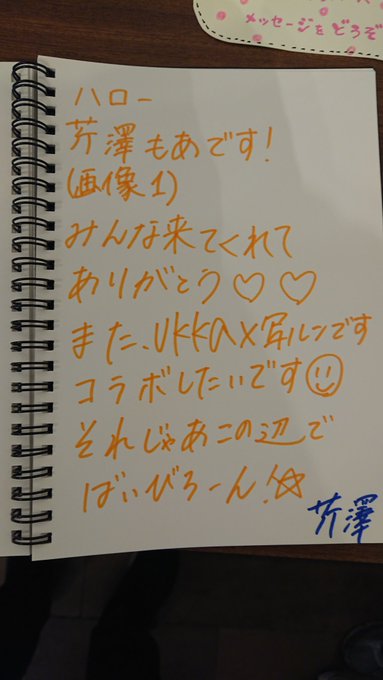 メッセージをどうぞ
ハロー
芹澤もあです!
(画像1)
みんな来てくれて
ありがとう♡♡
また、UKKA×写ルンです
コラボしたいです☺
それじゃあこの辺で
ばいびろーん!☆
芹澤